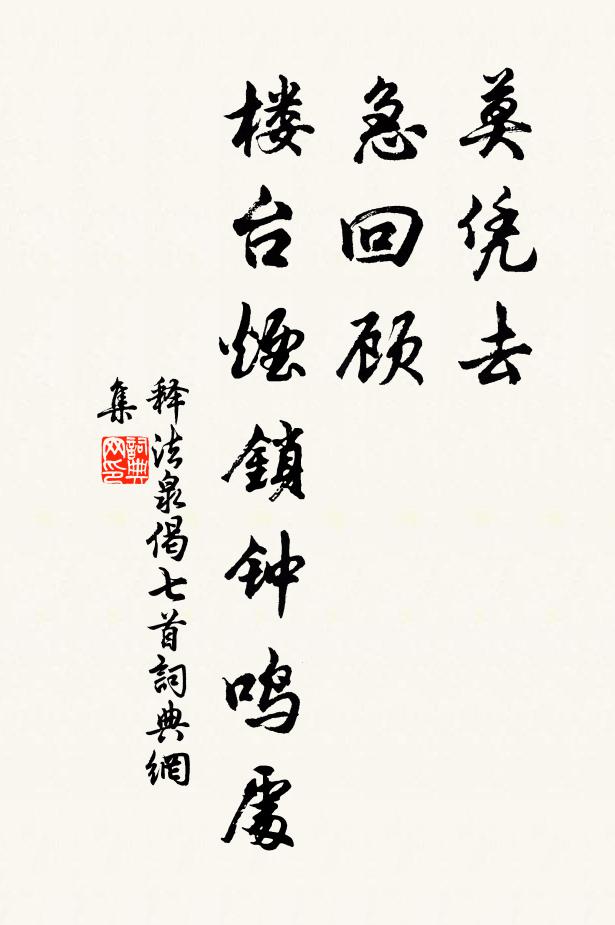 莫凭去
急回顾
楼台烟鎖钟鸣處
释法泉偈七首詞典網
集
詞典网印